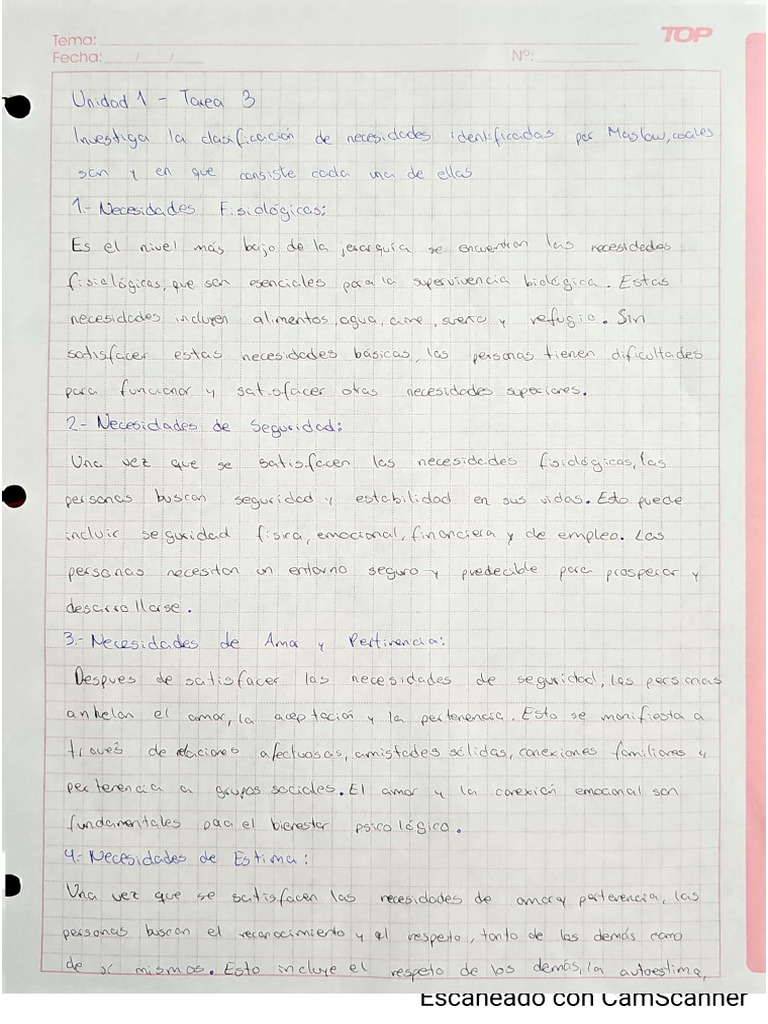 TOP
Tema:
Fecha: / / Nº:
Unidad 1 - Tarea 3
Investiga la clasificación de necesidades identificadas por Maslow, cuales
son y en que consiste cada una de ellas
1.- Necesidades Fisiológicas:
Es el nivel más bajo de la jerarquía se encuentran las necesidades
fisiológicas, que son esenciales para la supervivencia biológica. Estas
necesidades incluyen alimentos, agua, aire, sueño y refugio. Sin
satisfacer estas necesidades básicas, las personas tienen dificultades
para funcionar y satisfacer otras necesidades superiores.
2- Necesidades de Seguridad:
Una vez que se satisfacen las necesidades fisiológicas, las
personas buscan seguridad y estabilidad en sus vidas. Esto puede
incluir seguridad física, emocional, financiera y de empleo. Las
personas necesitan un entorno seguro y predecible para prosperar y
desarrollarse.
3.- Necesidades de Amor y Pertinencia:
Despues de satisfacer las necesidades de seguridad, las personas
anhelan el amor, la aceptación y la pertenencia. Esto se manifiesta a
través de relaciones afectuosas, amistades sólidas, conexiones familiares y
pertenencia a grupos sociales. El amor y la conexión emocional son
fundamentales para el bienestar psicológico.
4.- Necesidades de Estima:
Una vez que se satisfacen las necesidades de amor y pertenencia, las
personas buscan el reconocimiento y el respeto, tanto de los demás como
de sí mismos. Esto incluye el respeto de los demás, la autoestima,
Escaneado con CamScanner